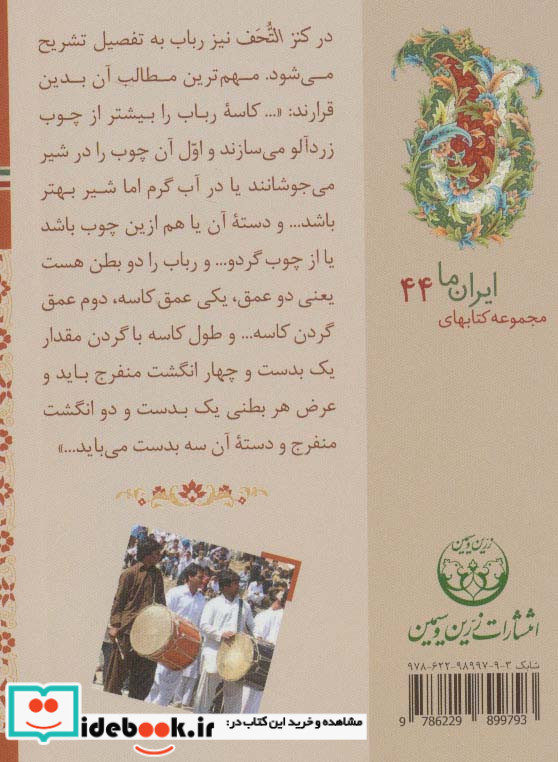 در کنز التُّحَف نیز رباب به تفصیل تشریح
می‌شود. مهم‌ترین مطالب آن بدین
قرارند: «... کاسهٔ رباب را بیشتر از چوب
زردآلو می‌سازند و اوّل آن چوب را در شیر
می‌جوشانند یا در آب گرم اما شیر بهتر
باشد... و دستهٔ آن یا هم ازین چوب باشد
یا از چوب گردو... و رباب را دو بطن هست
یعنی دو عمق، یکی عمق کاسه، دوم عمق
گردن کاسه... و طول کاسه با گردن مقدار
یک بدست و چهار انگشت منفرج باید و
عرض هر بطنی یک بدست و دو انگشت
منفرج و دستهٔ آن سه بدست می‌باید...»
ایران ما ۴۴
مجموعه کتابهای
زرین و سیمین
انتشارات زرین و سیمین
شابک ۳-۹-۹۸۹۹۷-۶۲۲-۹۷۸
9 786229 899793
idebook.ir
مشاهده و خرید این کتاب در: